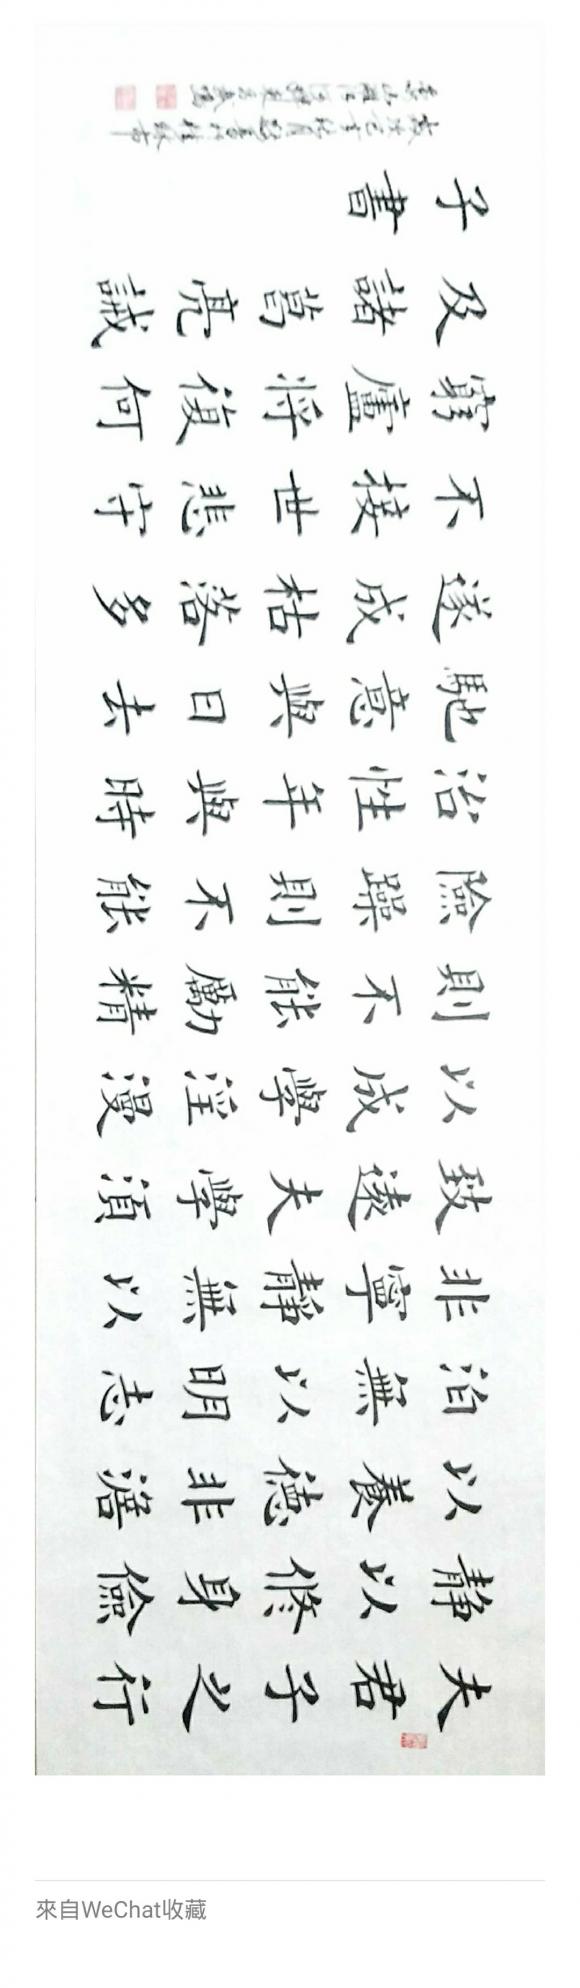 夫君子之行
静以修身儉
以養德非澹
泊無以明志
非寧静無以
致遠夫學須
以成學淫漫
則不能勵精
險躁則不能
治性年與時
馳意與日去
遂成枯落多
不接世悲守
窮廬將復何
及諸葛亮誡
子書
歲次己亥秋月
來自WeChat收藏